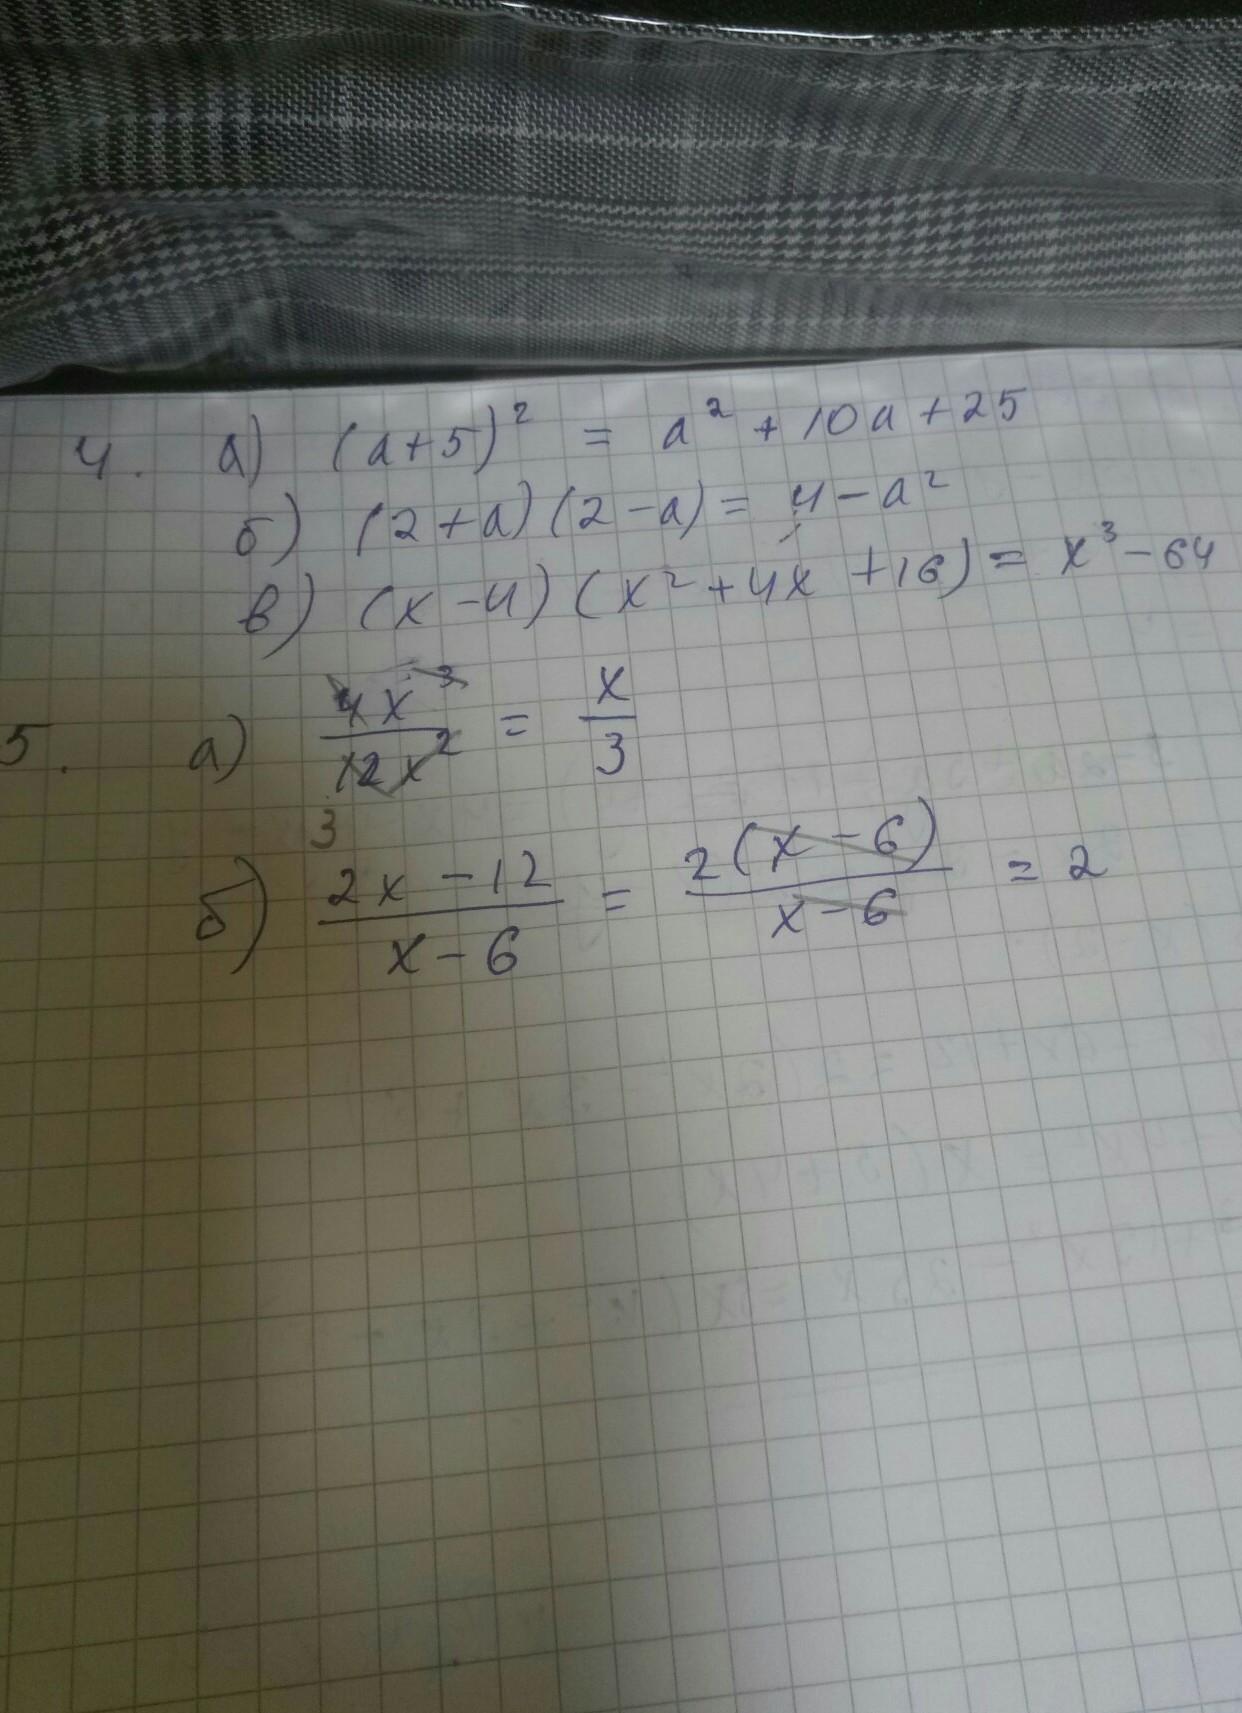 4. а) (a+5)² = a² + 10a + 25
б) (2+a)(2-a) = 4 - a²
в) (x-4)(x²+4x+16) = x³ - 64
5. а) 4x³/12x² = x/3
3
б) 2x-12/x-6 = 2(x-6)/x-6 = 2